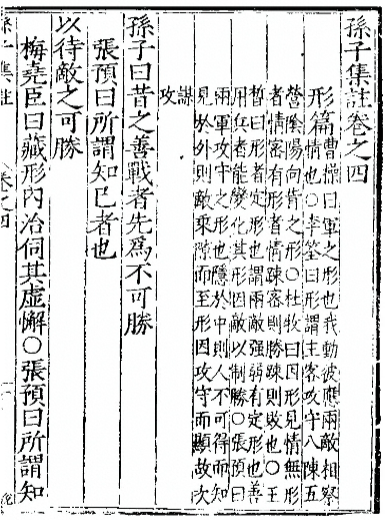 孫子集註卷之四
形篇
曹操曰軍之形也我動彼應兩敵相察
情也○李筌曰形謂主客攻守八陳五
營陰陽向背之形○杜牧曰因形見情無形
者情密有形者情疎密則勝疎則敗也○王
晳曰形者定形也謂兩敵强弱有定形也善
用兵者能變化其形因敵以制勝○張預曰
兩軍攻守之形也隱於中則人不可得而知
見於外則敵乘隙而至形因攻守而顯故次
謀
攻
孫子曰昔之善戰者先為不可勝
張預曰所謂知己者也
以待敵之可勝
梅堯臣曰藏形内治伺其虛懈○張預曰所謂知
孫子集註 卷之四